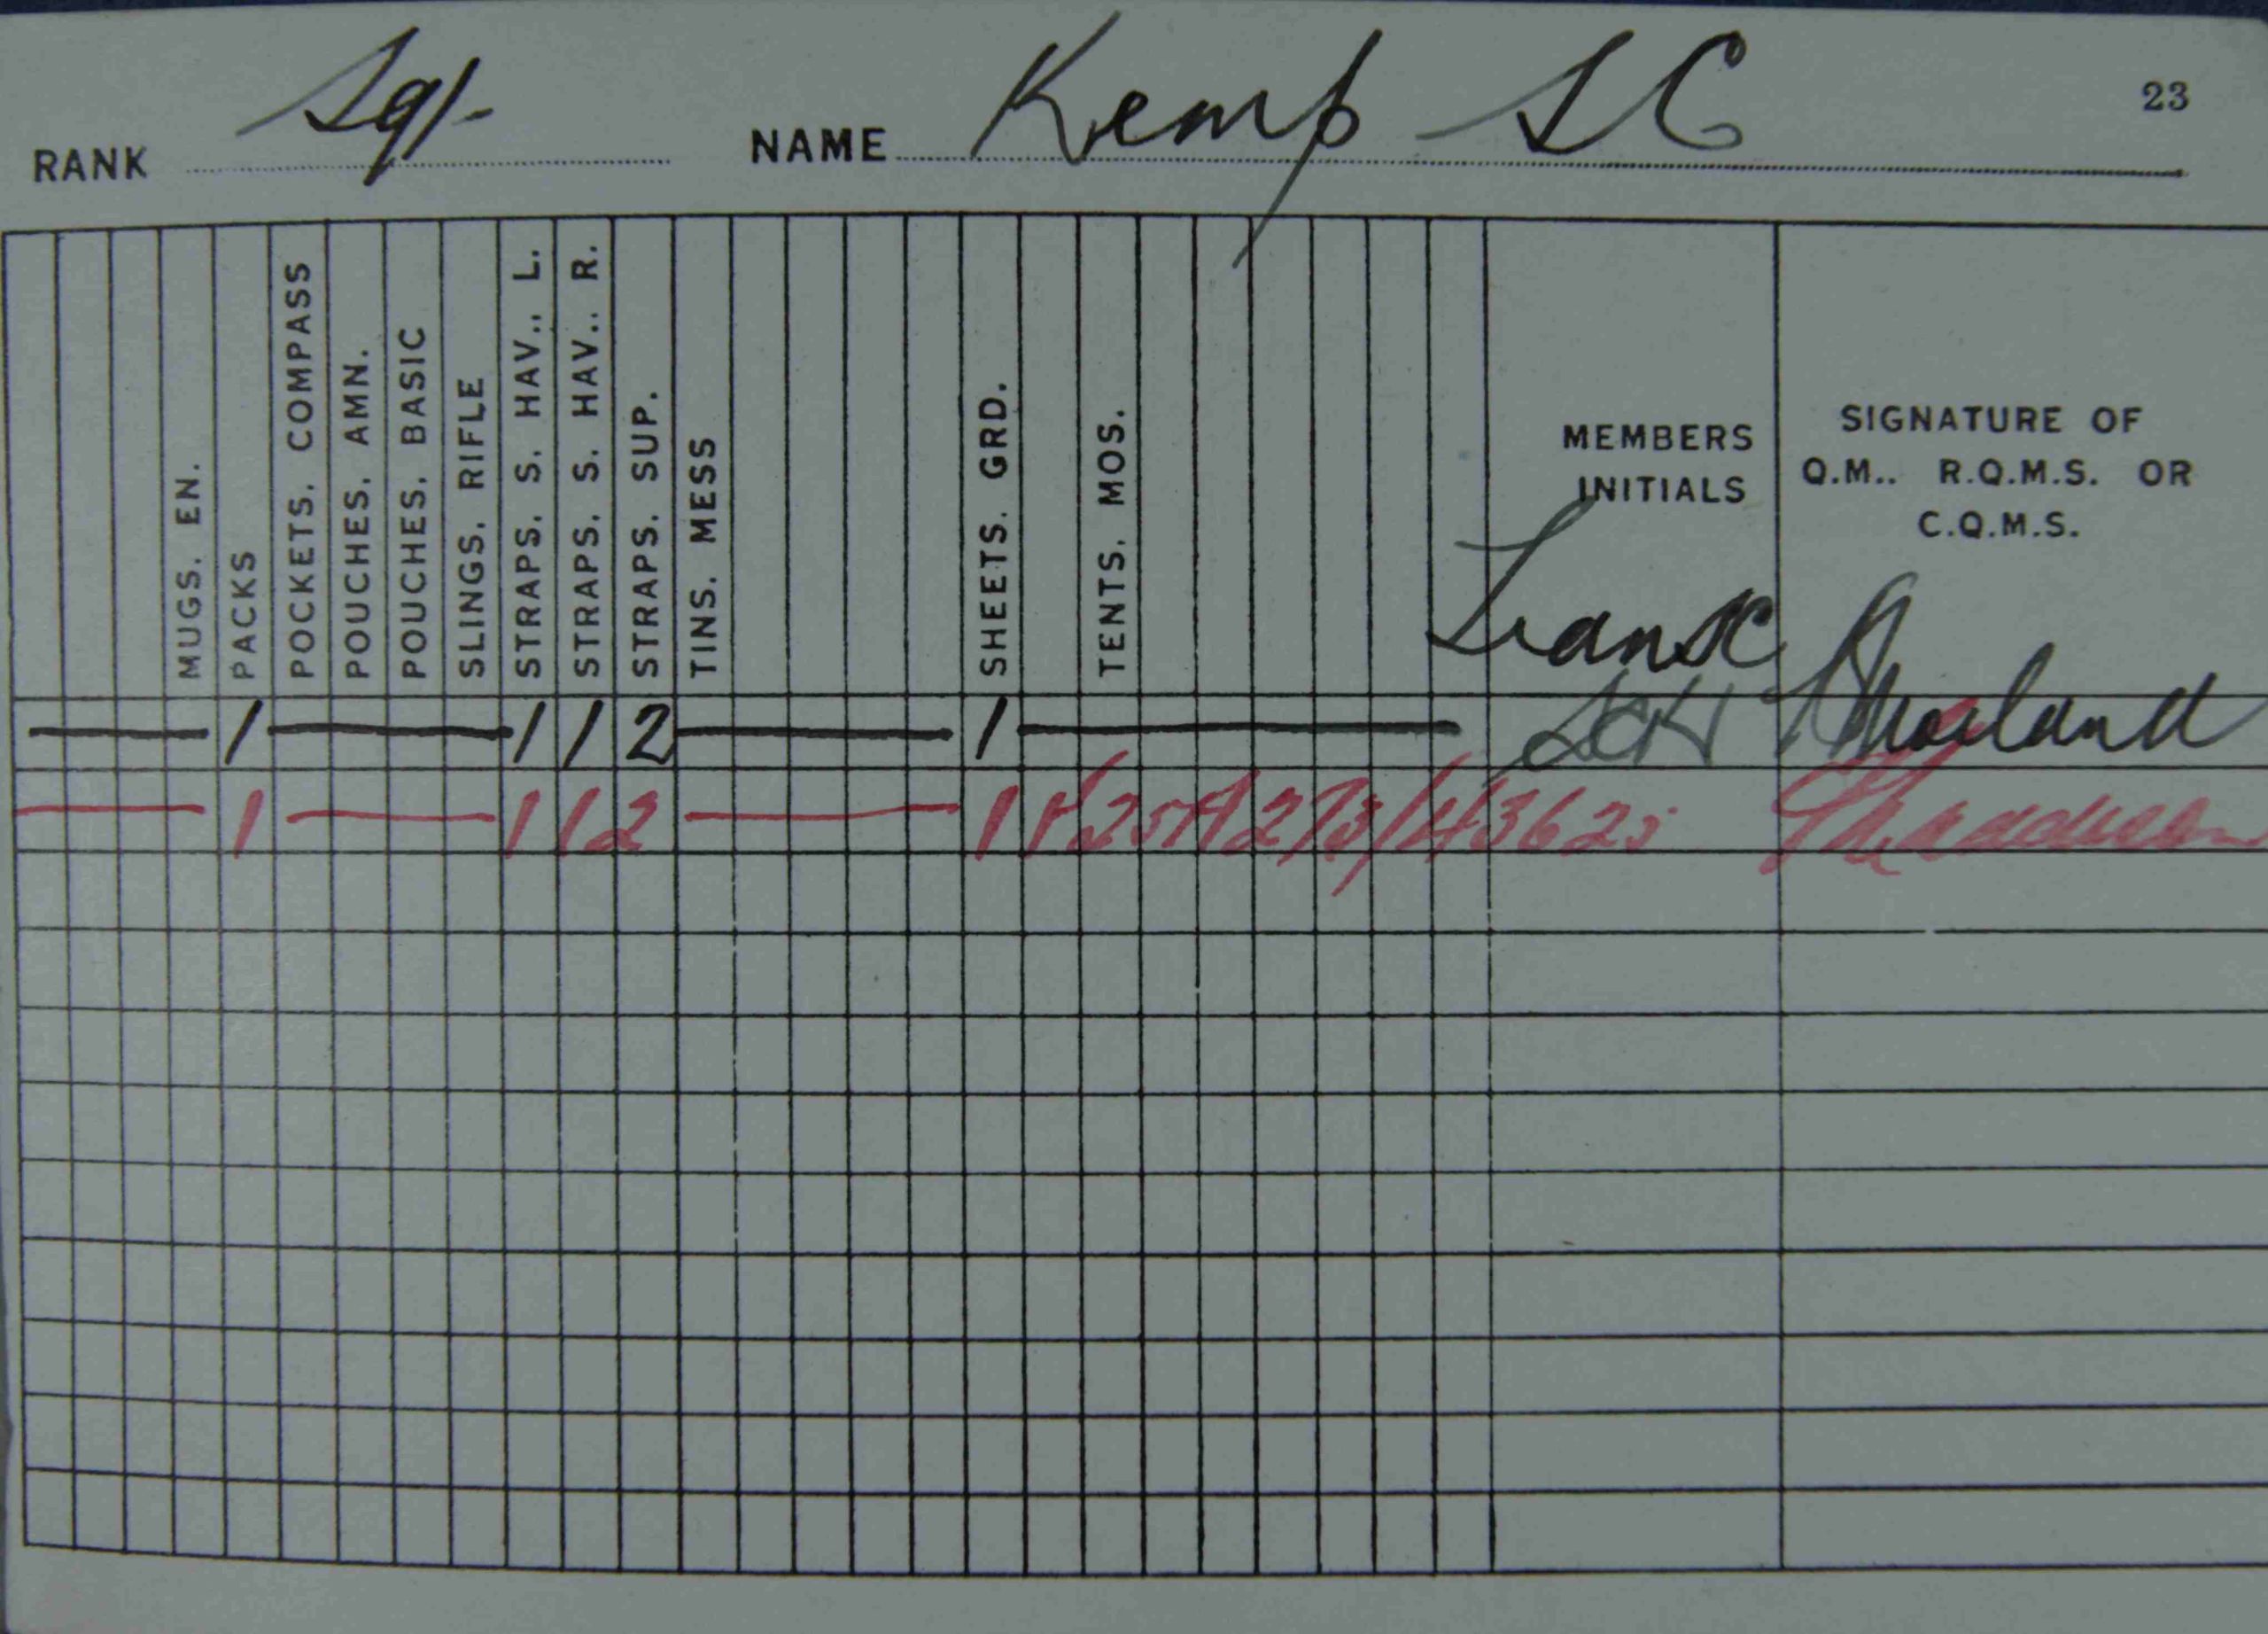 23
RANK Sgt. NAME Kemp S C
MUGS. EN.
PACKS
POCKETS. COMPASS
POUCHES. AMN.
POUCHES. BASIC
SLINGS. RIFLE
STRAPS. S. HAV.. L.
STRAPS. S. HAV.. R.
STRAPS. SUP.
TINS. MESS
SHEETS. GRD.
TENTS. MOS.
MEMBERS
INITIALS
SIGNATURE OF
Q.M.. R.Q.M.S. OR
C.Q.M.S.
1 1 1 2 1
1 1 1 2 1